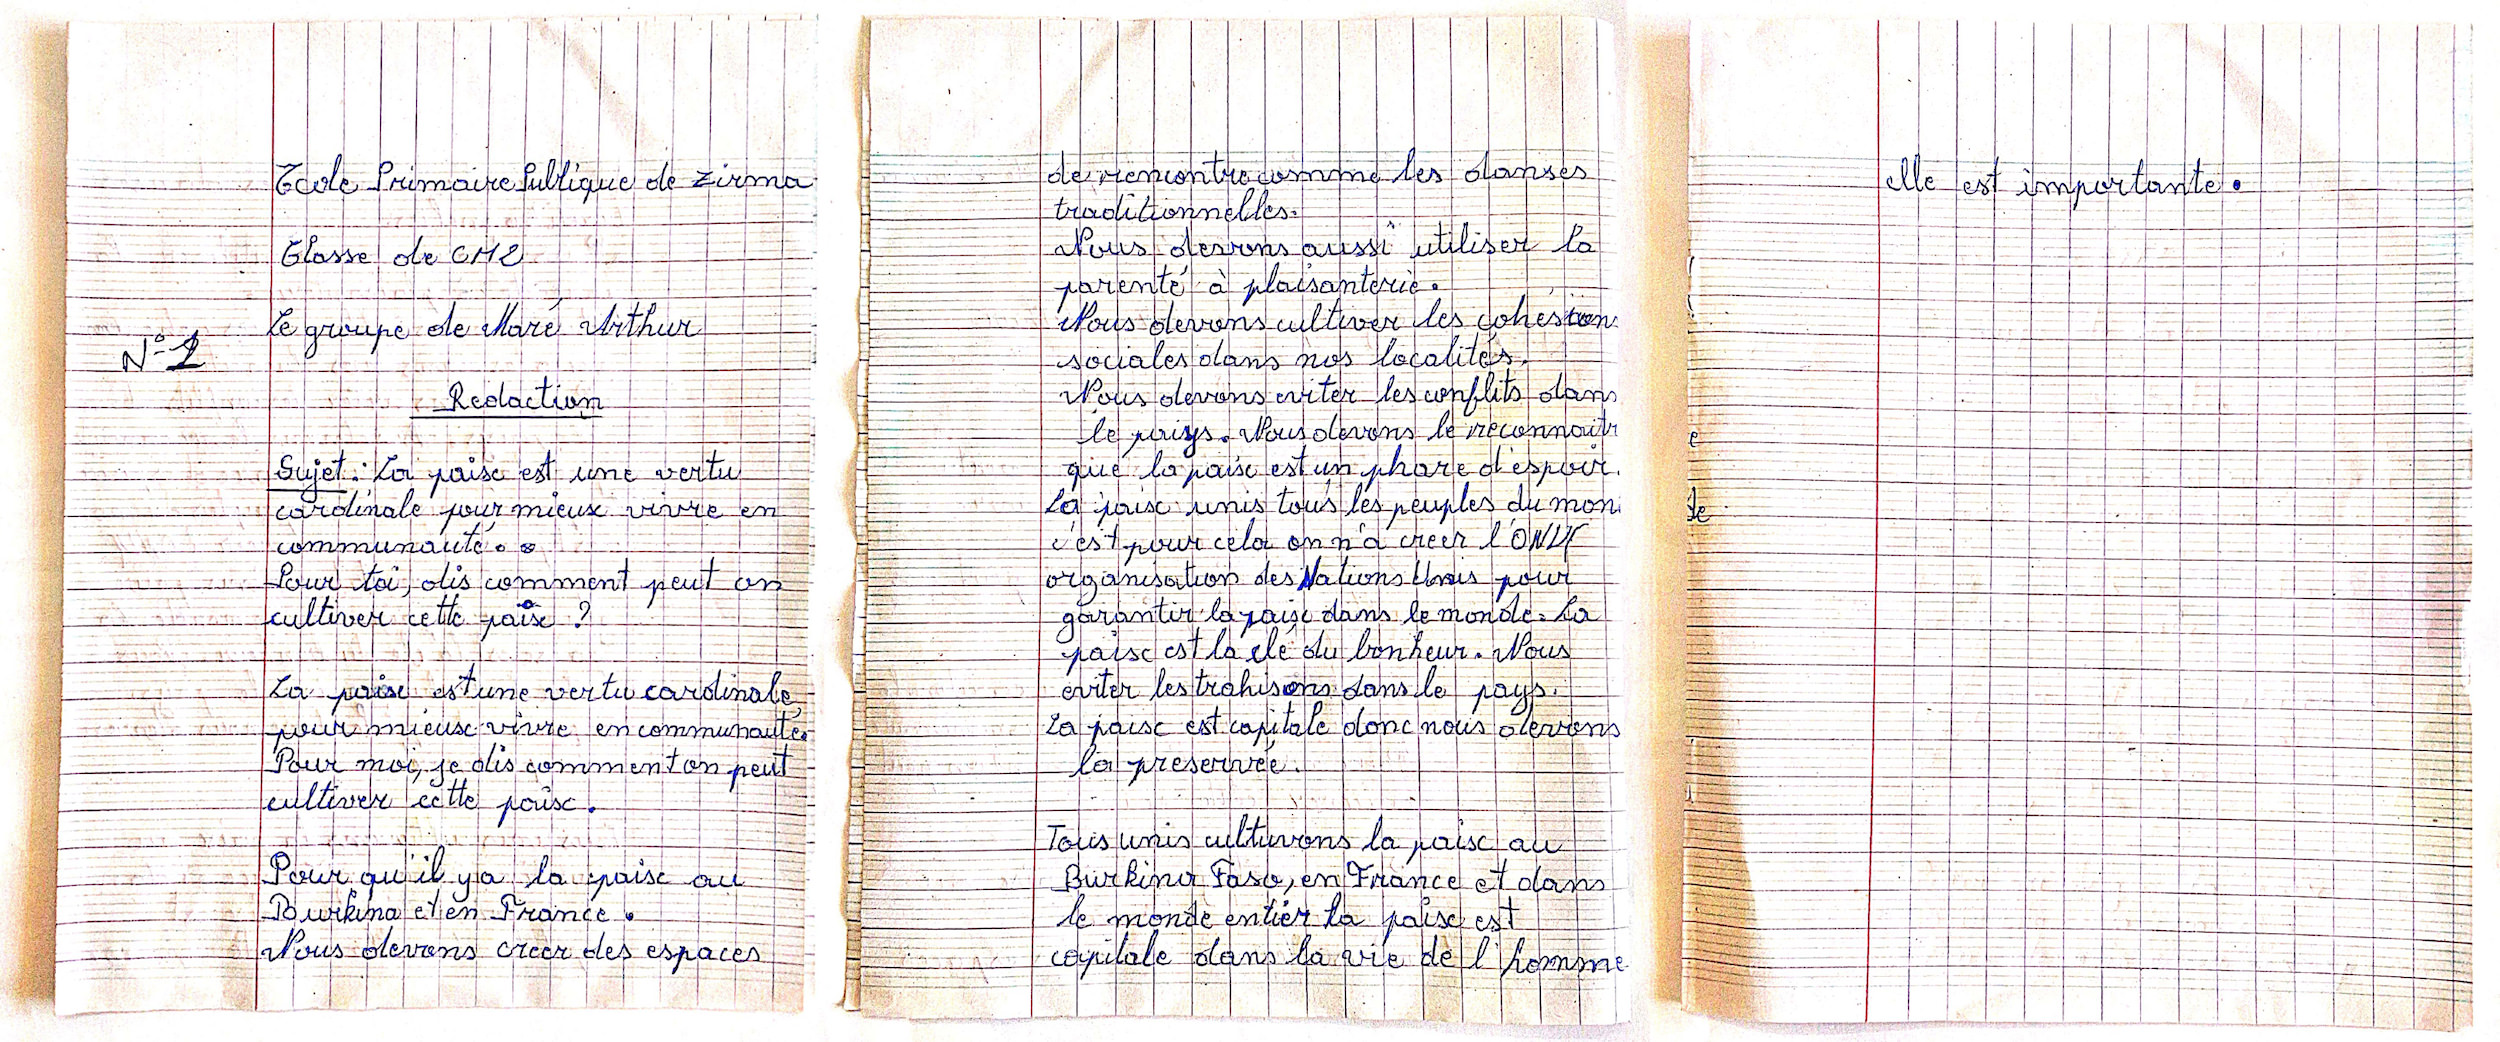 Ecole Primaire Publique de Zirma
Classe de CM2
Le groupe de Maré Arthur
N° 1
Redaction
Sujet : La paix est une vertu
cardinale pour mieux vivre en
communauté.
Pour toi, dis comment peut on
cultiver cette paix ?
La paix est une vertu cardinale
pour mieux vivre en communauté.
Pour moi, je dis comment on peut
cultiver cette paix.
Pour qu'il y a la paix au
Burkina et en France.
Nous devons creer des espaces
de rencontre comme les danses
traditionnelles.
Nous devons aussi utiliser la
parenté à plaisanterie.
Nous devons cultiver les cohesions
sociales dans nos localités.
Nous devons eviter les conflits dans
le pays. Nous devons le reconnaitre
que la paix est un phare d'espoir.
La paix unis tous les peuples du monde
c'est pour cela on n'a creer l'ONU
organisation des Nations Unis pour
garantir la paix dans le monde. La
paix est la clé du bonheur. Nous
eviter les trahisons dans le pays.
La paix est capitale donc nous devons
la preservée.
Tous unis cultuvons la paix au
Burkina Faso, en France et dans
le monde entier la paix est
capitale dans la vie de l'homme
elle est importante.